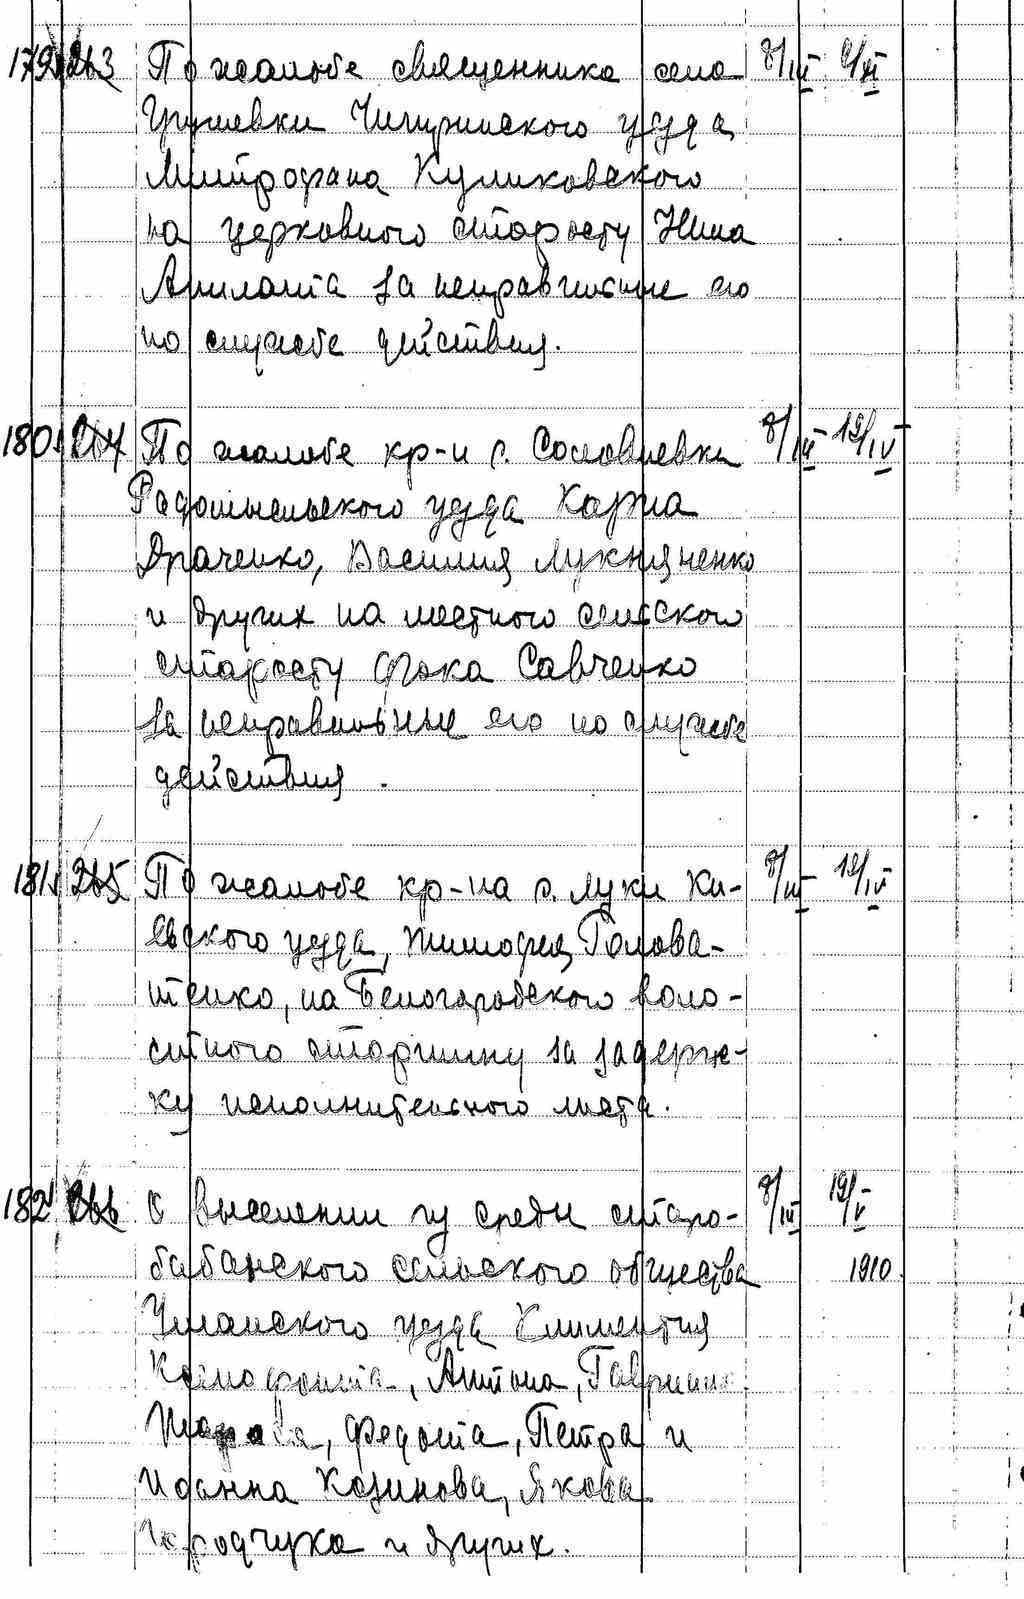 179 263 По жалобе священника села 8/III 6/XI
Грушевки Чигиринского уезда
Митрофана Куликовского
на церковного старосту Нила
за неправильные его
по службе действия.
180 264 По жалобе кр-н с. Соловиевки 8/III 12/IV
Радомысльского уезда Карпа
Драченко, Василия Лукияненко
и других на местного сельского
старосту Фока Савченко
за неправильные его по службе
действия.
181 265 По жалобе кр-на с. Луки Ки- 8/III 12/IV
евского уезда, Тимофея Голова-
тенко, на Белогородского воло-
стного старшину за задерж-
ку исполнительного листа.
182 266 О выселении из среды старо- 8/III 19/V
бабанского сельского общества 1910
Уманского уезда Климентия
Антона, Гавриила
Федота, Петра и
Иоанна Козинова, Якова
и других.